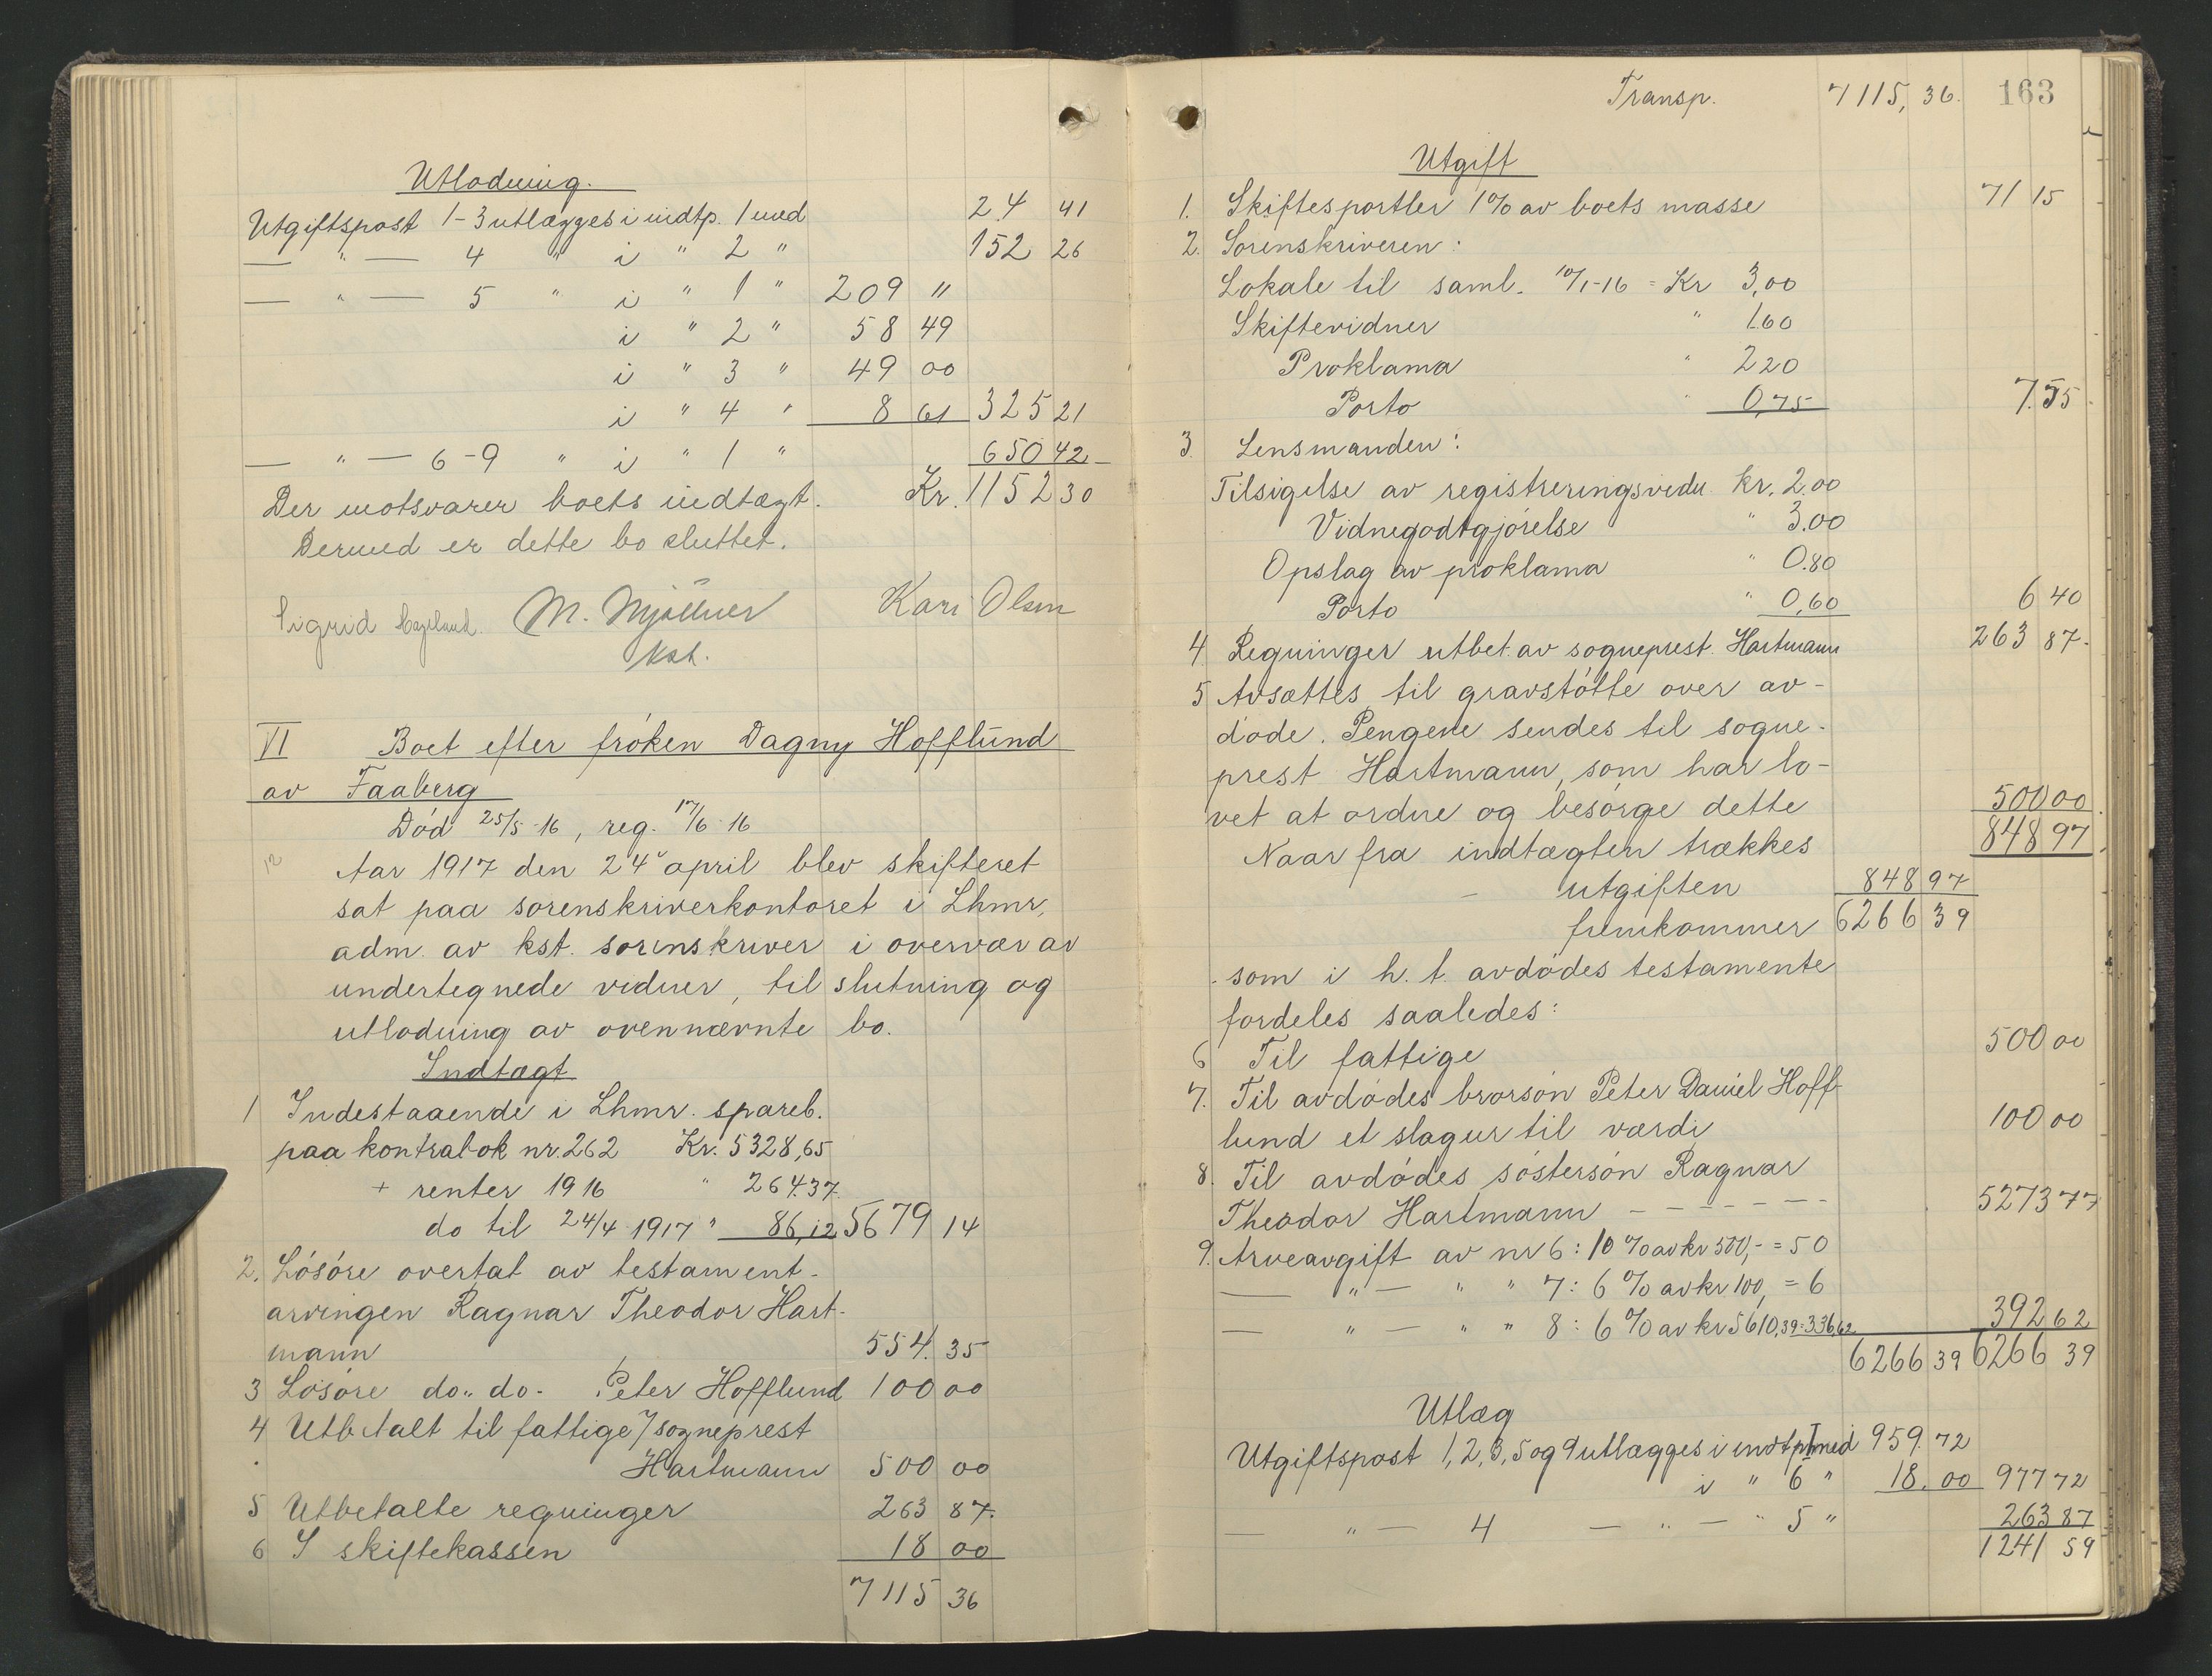 Utlodning.
Utgiftspost 1-3 utlægges i indtp. 1 med 24 41
— " — 4 " i " 2 " 152 26
— " — 5 " i " 1 " 209 "
i " 2 " 58 49
i " 3 " 49 00
i " 4 " 8 61 325 21
— " — 6-9 " i " 1 " 650 42
Der motsvarer boets indtægt. Kr. 1152 30
Dermed er dette bo sluttet.
Sigrid M. Mjöllner Kari Olsen
kst.
VI Boet efter frøken Dagny Hofflund
av Faaberg
Död 25/5-16, reg. 17/6-16
Aar 1917 den 24' april blev skifteret
sat paa sorenskriverkontoret i Lhmr,
adm. av kst. sorenskriver i overvær av
undertegnede vidner, til slutning og
utlodning av ovennævnte bo.
Indtægt
1 Indestaaende i Lhmr. spareb.
paa kontrabok nr. 262 Kr. 5328,65
+ renter 1916 " 264.37
do til 24/4 1917 " 86,12 5679 14
2. Lösöre overtat av testament-
arvingen Ragnar Theodor Hart-
mann 554. 35
3 Lösöre do.. do- Peter Hofflund 100 00
4 Utbetalt til fattige v/ sogneprest
Hartmann 500 00
5 Utbetalte regninger 263 87.
6 I skiftekassen 18 00
7115 36
Transp. 7115, 36. 163
Utgift
1. Skiftesportler 1% av boets masse 71 15
2. Sorenskriveren:
Lokale til saml. 10/1-16 = Kr 3,00
Skiftevidner " 1.60
Proklama " 2 20
Porto " 0,75 7.55
3. Lensmanden:
Tilsigelse av registreringsvidn. kr. 2.00
Vidnegodtgjörelse " 3.00
Opslag av proklama " 0.80
Porto " 0,60 6 40
4 Regninger utbet. av sogneprest. Hartmann 263 87.
5 Avsættes til gravstötte over av-
döde. Pengene sendes til sogne-
prest Hartmann, som har lo-
vet at ordne og besörge dette 500 00
Naar fra indtægten trækkes 848 97
utgiften 848 97
fremkommer 6266 39
som i h. t. avdödes testamente
fordeles saaledes:
6 Til fattige 500 00
7. Til avdödes brorsön Peter Daniel Hoff-
lund et slagur til værdi 100 00
8. Til avdödes söstersön Ragnar
Theodor Hartmann - - - - - - 5273 77
9. Arveavgift av nr 6: 10 % av kr 500,- = 50
— " — " " 7: 6 % av kr 100, = 6
— " — " " 8: 6 % av kr 5610,39 = 336,62 392 62
6266 39 6266 39
Utlæg
Utgiftspost 1, 2, 3, 5 og 9 utlægges i indtp. 1 med 959. 72
i " 6 " 18. 00 977 72
— " — 4 — " — " 5 " 263 87
1241 59